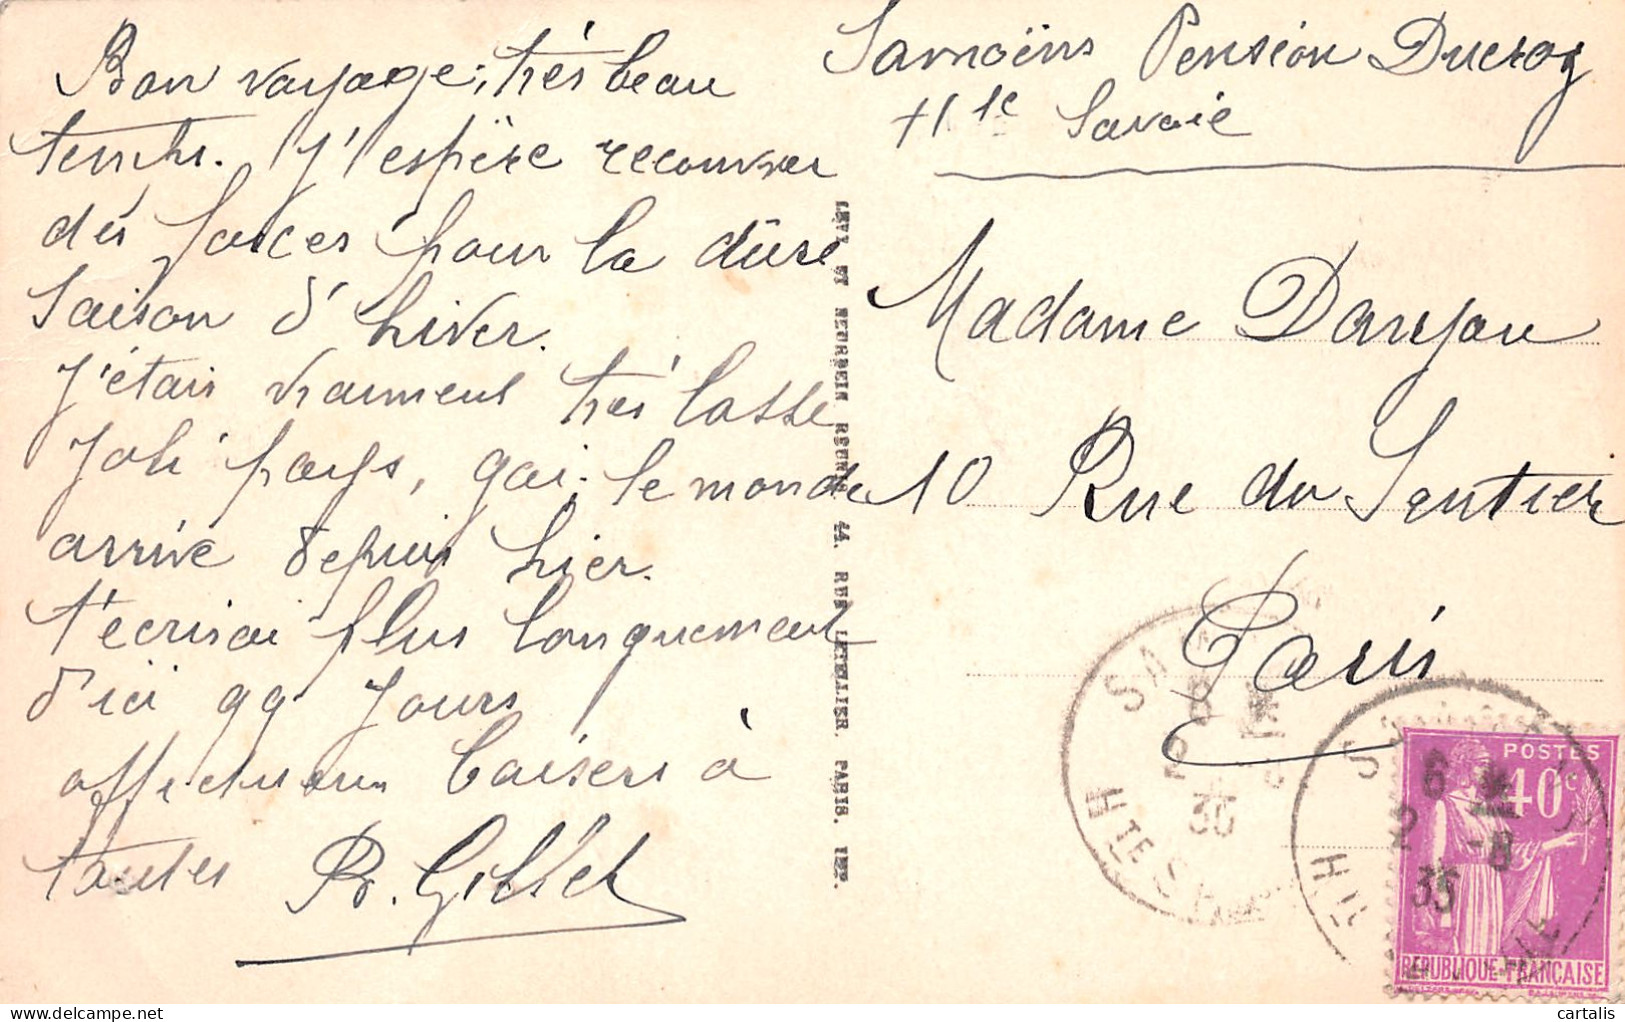 Bon voyage, très beau
temps. J'espère recouvrer
des forces pour la dure
saison d'hiver.
J'étais vraiment très lasse
Joli pays, gai. le monde
arrive depuis hier.
t'écrirai plus longuement
d'ici qq jours
affectueux baisers à
toutes R. Gillet
Samoëns Pension Ducroz
Hte Savoie
Madame Danjou
10 Rue du Sentier
Paris
LEVY ET NEURDEIN REUNIS, 44, RUE LETELLIER, PARIS. IMP.
HTE S
35
POSTES
40c
6
2 -8
35
RÉPUBLIQUE FRANÇAISE
cartalis